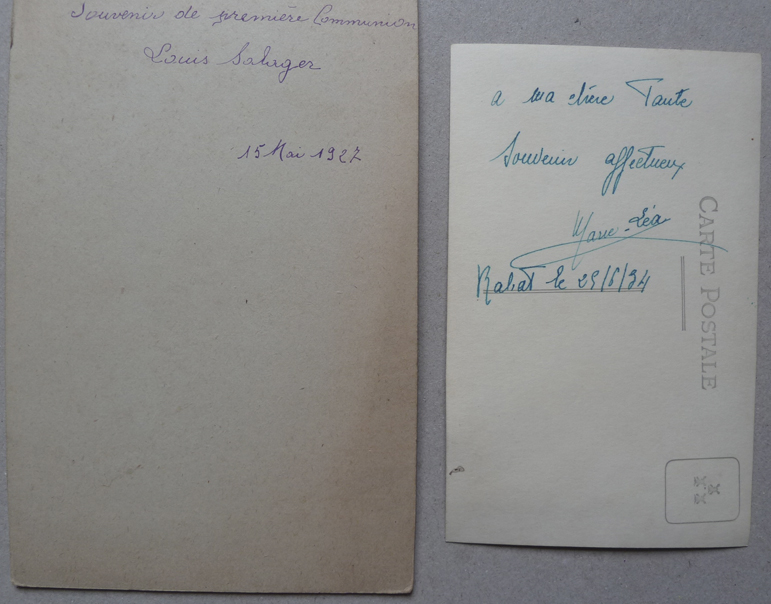 Souvenir de première Communion
Louis Salager
15 Mai 1927
a ma chère Tante
Souvenir affectueux
Marie-Léa
Rabat le 29/6/34
CARTE POSTALE